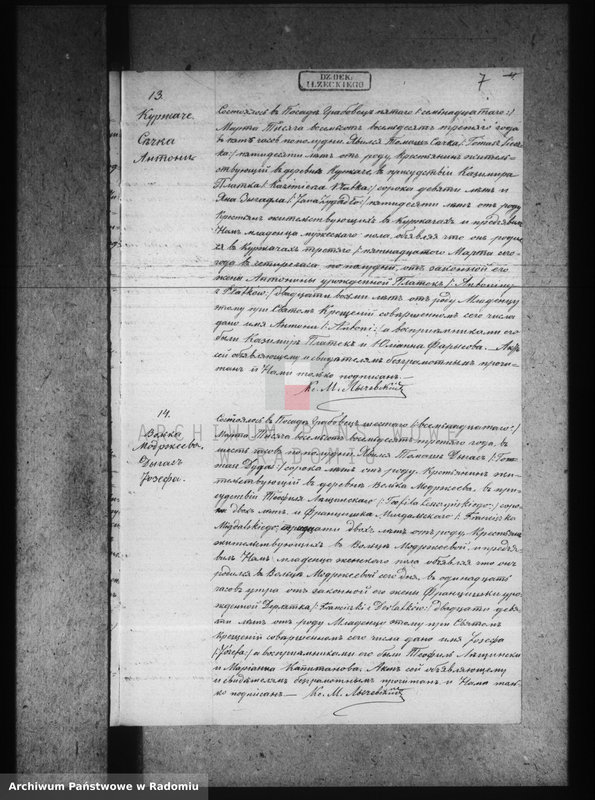 DZ DEK.
IŁŻECKIEGO
7
13.
Куржаче
Сачка
Антони
Состоялось въ Посадѣ Грабовецъ пятаго /:семнадцатаго:/
Марта Тысяча восемьсотъ восемьдесятъ третьяго года
въ часовъ пополудни. Явился Томашъ Сачка /:Tomasz
пятидесяти лѣтъ отъ роду Крестьянинъ житель-
ствующій въ деревнѣ Куржаче, въ присутствіи Казимира
Платка /:Kazimierza Płatka:/ сорока девяти лѣтъ и
Яна пятидесяти лѣтъ отъ роду
Крестьянъ жительствующихъ въ Куржачахъ и предъявилъ
Намъ младенца мужескаго пола, объявляя что онъ родил-
ся въ Куржачахъ третьяго /:пятнадцатаго Марта сего
года въ четыре часа по полудни, отъ законной его
жены Антонины урожденной Платекъ /:Antoniny
z Płatków:/ двадцати восьми лѣтъ отъ роду. Младенцу
этому при Святомъ Крещеніи совершенномъ сего числа
дано имя Антони /:Antoni:/ а воспріемниками его
были Казимиръ Платекъ и Юліанна Фарысова. Актъ
сей объявляющему и свидѣтелямъ безграмотнымъ прочи-
танъ и Нами только подписанъ.
Кс. М.
14.
Волька
Модржеёва
Дыгасъ
Юзефа.
Состоялось въ Посадѣ Грабовецъ шестаго /:восемнадцатаго:/
Марта Тысяча восемьсотъ восемьдесятъ третьяго года, въ
шесть часовъ пополудни. Явился Томашъ Дыгасъ /:Tom-
asz Dygas:/ сорока лѣтъ отъ роду, Крестьянинъ жи-
тельствующій въ деревнѣ Волька Модржеёва, въ при-
сутствіи Теофиля Лещинскаго /:Teofila Leszczyńskiego:/ соро-
ка двухъ лѣтъ и Францишка Мигдальскаго /:Franciszka
Migdalskiego:/ тридцати двухъ лѣтъ отъ роду, Крестьянъ
жительствующихъ въ Волькѣ Модржеёвой, и предъя-
вилъ Намъ младенца женскаго пола объявляя что онъ
родился въ Волькѣ Модржеёвой сего дня, въ одинадцать
часовъ утра отъ законной его жены Францишки уро-
жденной двадцати девя-
ти лѣтъ отъ роду. Младенцу этому при Святомъ
Крещеніи совершенномъ сего числа дано имя Юзефа
/:Józefa:/ а воспріемниками его были Теофиль Лещински
и Маріанна Капитанова. Актъ сей объявляющему
и свидѣтелямъ безграмотнымъ прочитанъ и Нами толь-
ко подписанъ. Кс. М.
ARCHIWUM PAŃSTWOWE
W RADOMIU
Archiwum Państwowe w Radomiu